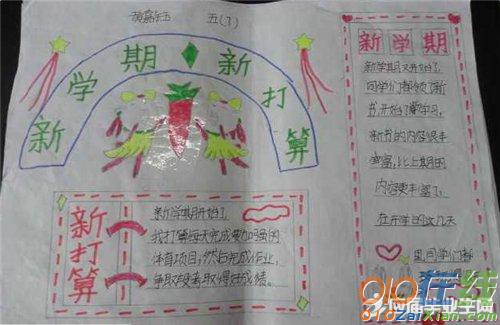 五(1)
新学期新打算
新学期
新学期又开始了
同学们都领了新
书,开始了学习,
新书的内容很丰
富,比上期的
内容更丰富了,
在开学的这几天
里同学们都
新打算
新学期开始了
我打算每天完成要加强的
体育项目,然后完成作业,
争取段考取得好成绩。
应届毕业生网